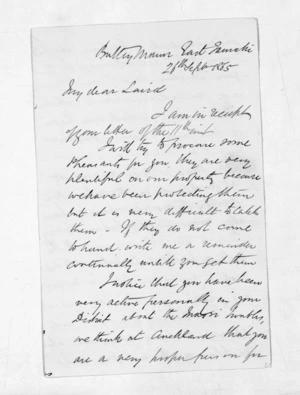 East Tamaki
26th Sept 1865
My dear Laird
I am in receipt
of your letter of the 11th inst
I will try to procure some
Pheasants for you they are very
plentiful on our property because
we have been protecting them
but it is very difficult to catch
them - If they do not come
to hand write me a reminder
continually until you get them
I notice that you have been
very active personally in your
District about the Maori troubles,
we think at Auckland that you
are a very proper person for